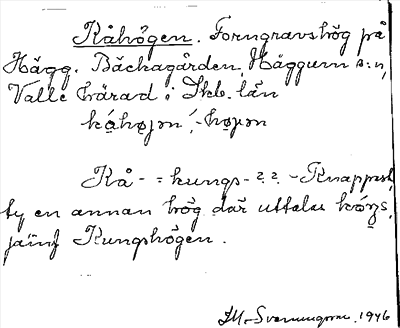 Kåhögen. Forngravshög på
Hägg. Bäckagården, Häggum s:n,
Valle härad i Skb. län
kåhøjən, -højən
Kå- = kungs- ? ? - Knappast
ty en annan hög där uttalas
jämf Kungshögen.
1946